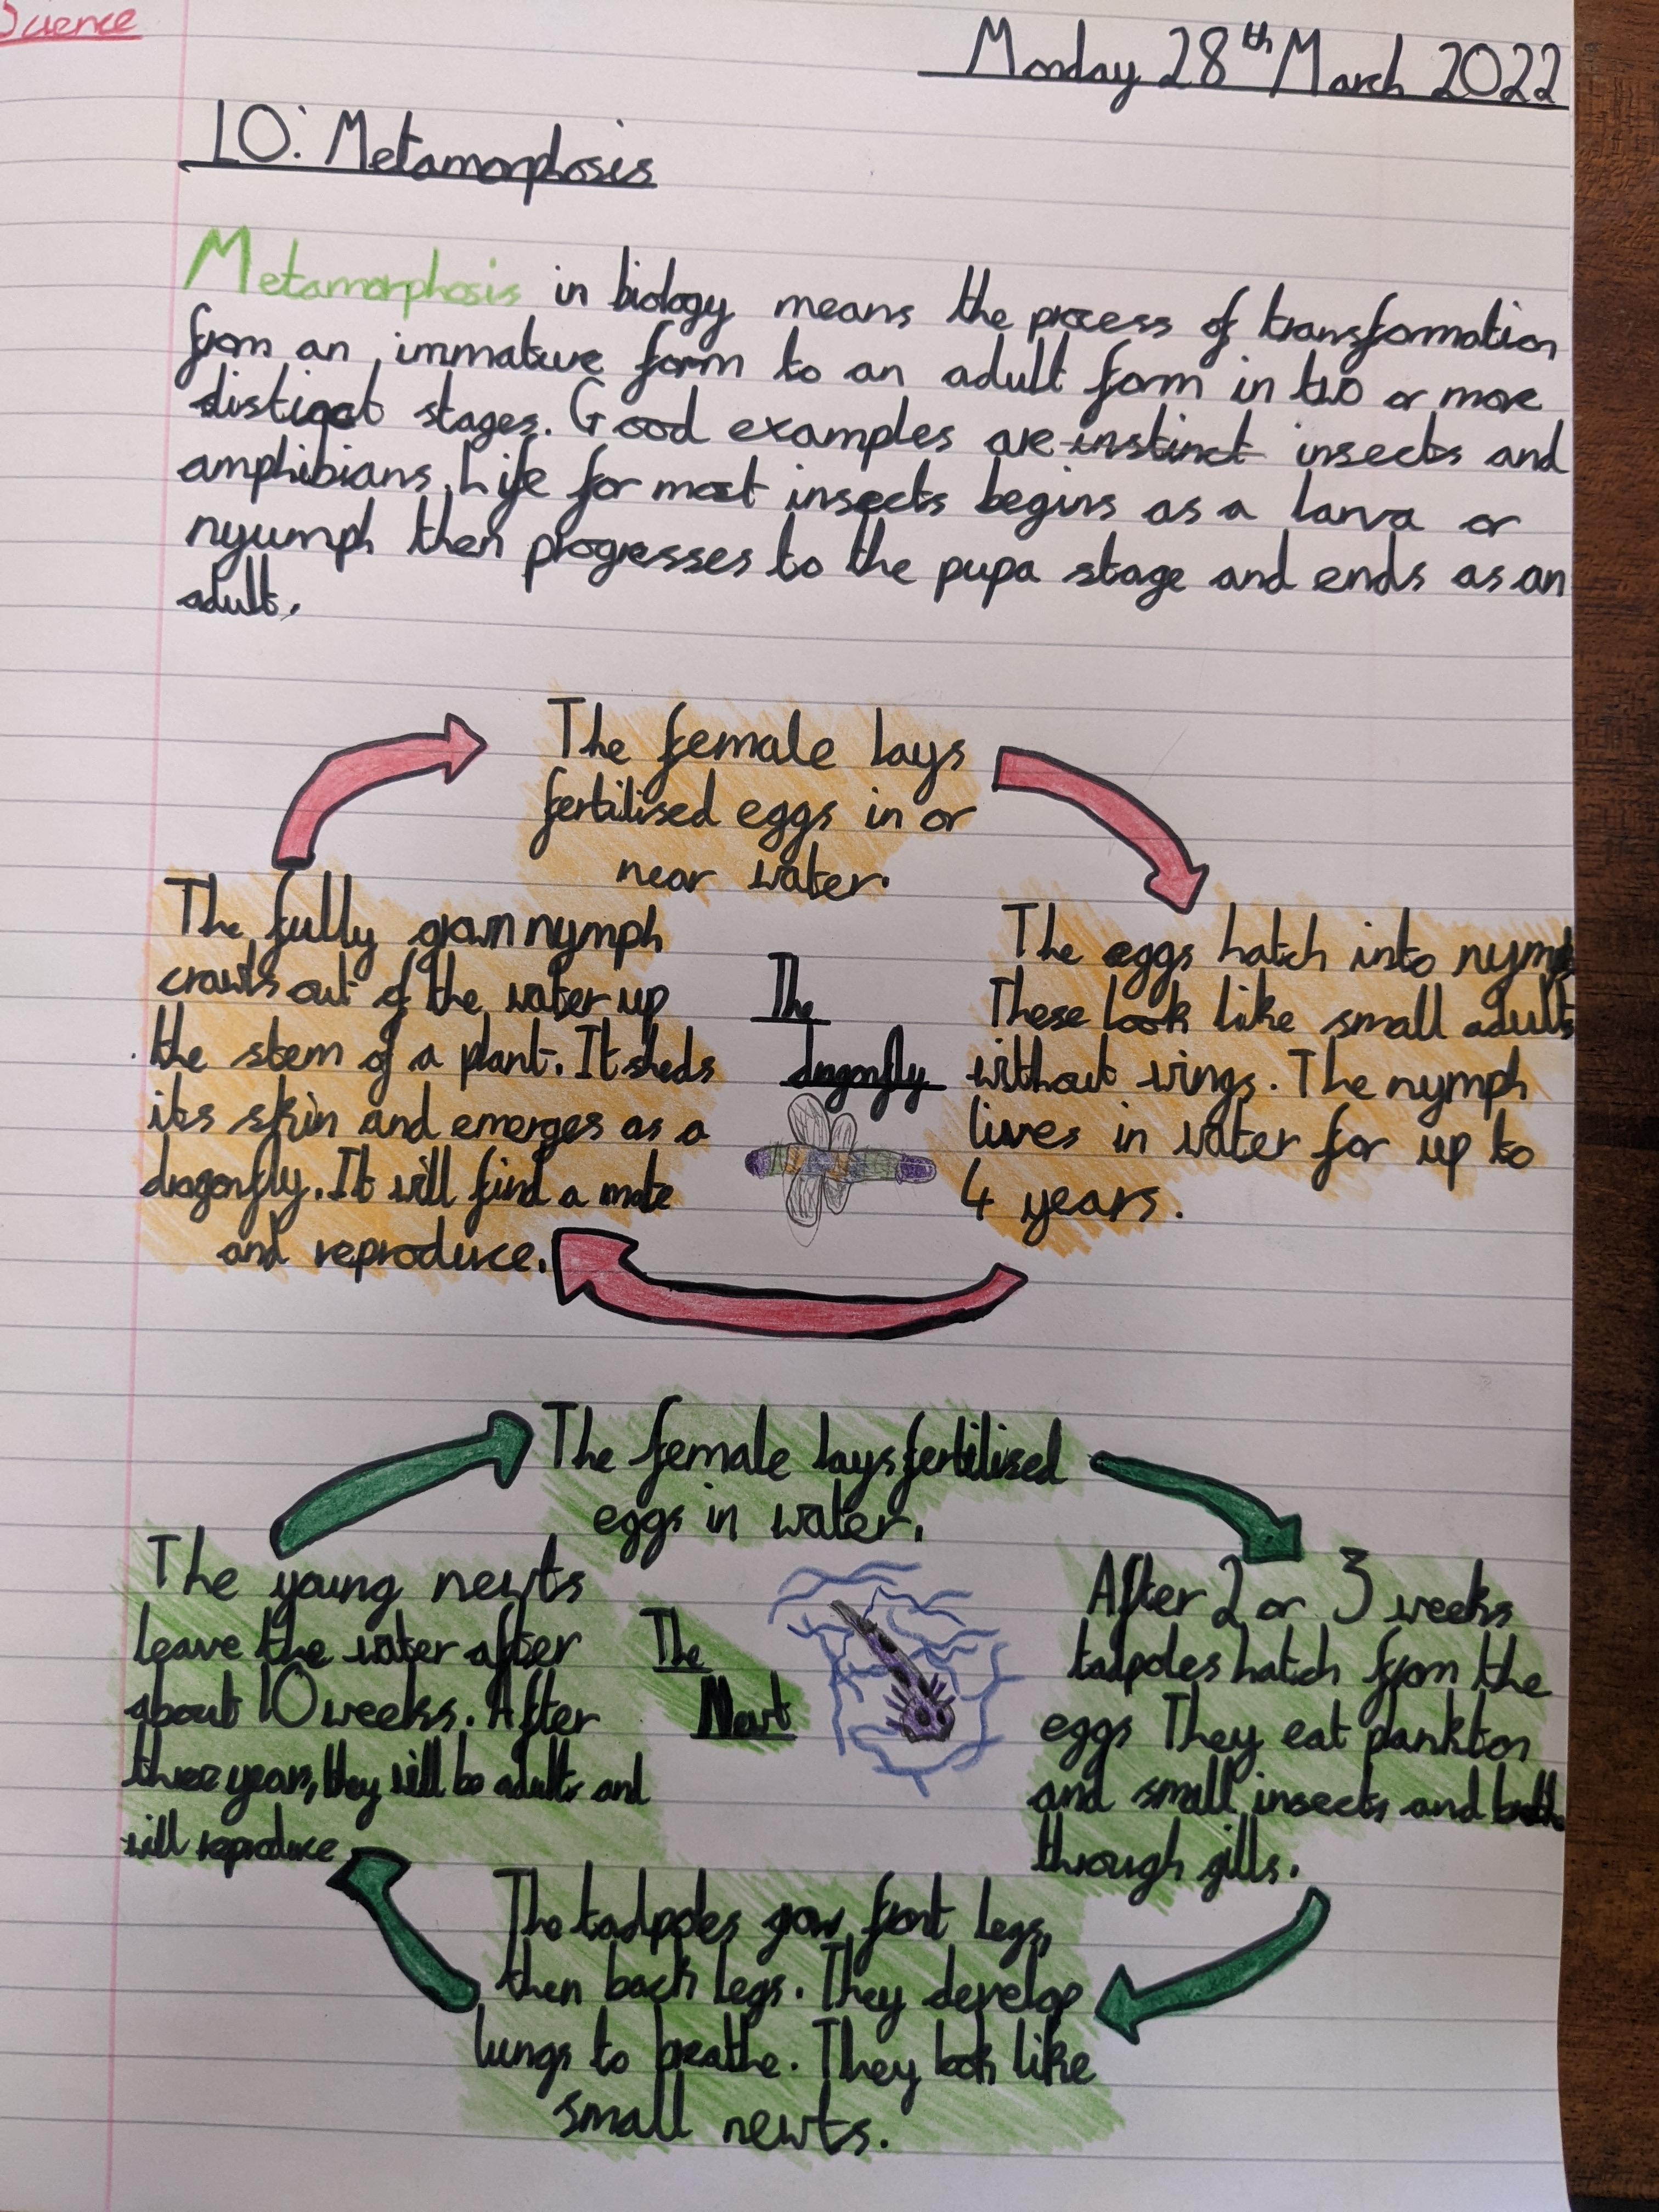 Science
Monday 28th March 2022
LO: Metamorphosis
Metamorphosis in biology means the process of transformation
from an immature form to an adult form in two or more
distinct stages. Good examples are instinct insects and
amphibians. Life for most insects begins as a larva or
nyumph then progresses to the pupa stage and ends as an
adult.
The female lays
fertilised eggs in or
near water.
The eggs hatch into nymp
These look like small adults
without wings. The nymph
lives in water for up to
4 years.
The fully grown nymph
crawls out of the water up
the stem of a plant. It sheds
its skin and emerges as a
dragonfly. It will find a mate
and reproduce.
The
dragonfly
The female lays fertilised
eggs in water.
After 2 or 3 weeks
tadpoles hatch from the
eggs They eat plankton
and small insects and
through gills.
The tadpoles grow front legs,
then back legs. They develop
lungs to breathe. They look like
small newts.
The young newts
leave the water after
about 10 weeks. After
three years, they will be adults and
will reproduce
The
Newt